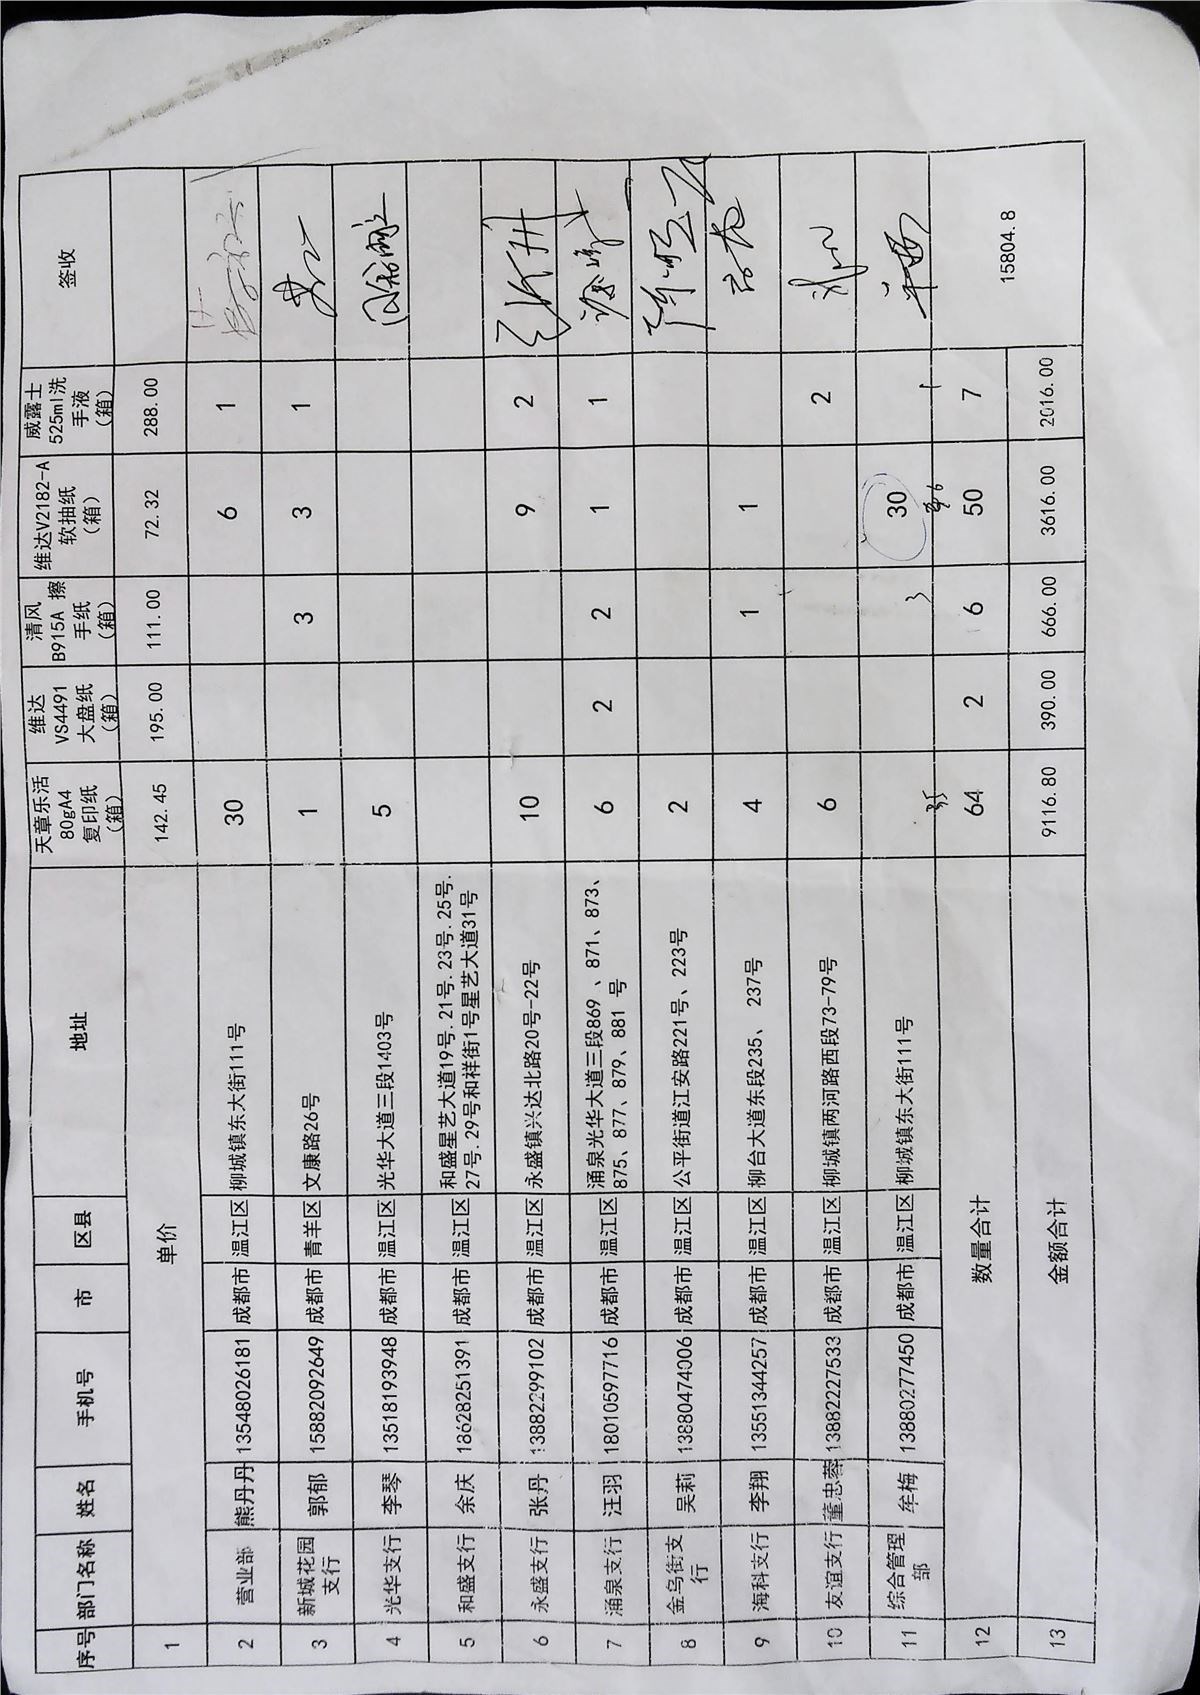 序号 部门名称 姓名 手机号 市 区县 地址 天章乐活80gA4复印纸（箱） 维达VS4491大盘纸（箱） 清风B915A 擦手纸（箱） 维达V2182-A软抽纸（箱） 威露士525ml洗手液（箱） 签收
1 单价 142.45 195.00 111.00 72.32 288.00
2 营业部 熊丹丹 13548026181 成都市 温江区 柳城镇东大街111号 30 6 1
3 新城花园支行 郭郁 15882092649 成都市 青羊区 文康路26号 1 3 3 1
4 光华支行 李琴 13518193948 成都市 温江区 光华大道三段1403号 5
5 和盛支行 余庆 18628251391 成都市 温江区 和盛星艺大道19号.21号.23号.25号.27号.29号和祥街1号星艺大道31号
6 永盛支行 张丹 13882299102 成都市 温江区 永盛镇兴达北路20号-22号 10 9 2
7 涌泉支行 汪羽 18010597716 成都市 温江区 涌泉光华大道三段869、871、873、875、877、879、881号 6 2 2 1 1
8 金鸟街支行 吴莉 13880474006 成都市 温江区 公平街道江安路221号、223号 2
9 海科支行 李翔 13551344257 成都市 温江区 柳台大道东段235、237号 4 1 1
10 友谊支行 董忠蓉 13882227533 成都市 温江区 柳城镇两河路西段73-79号 6 2
11 综合管理部 牟梅 13880277450 成都市 温江区 柳城镇东大街111号 35 3 30 1
12 数量合计 64 2 6 50 7 15804.8
13 金额合计 9116.80 390.00 666.00 3616.00 2016.00